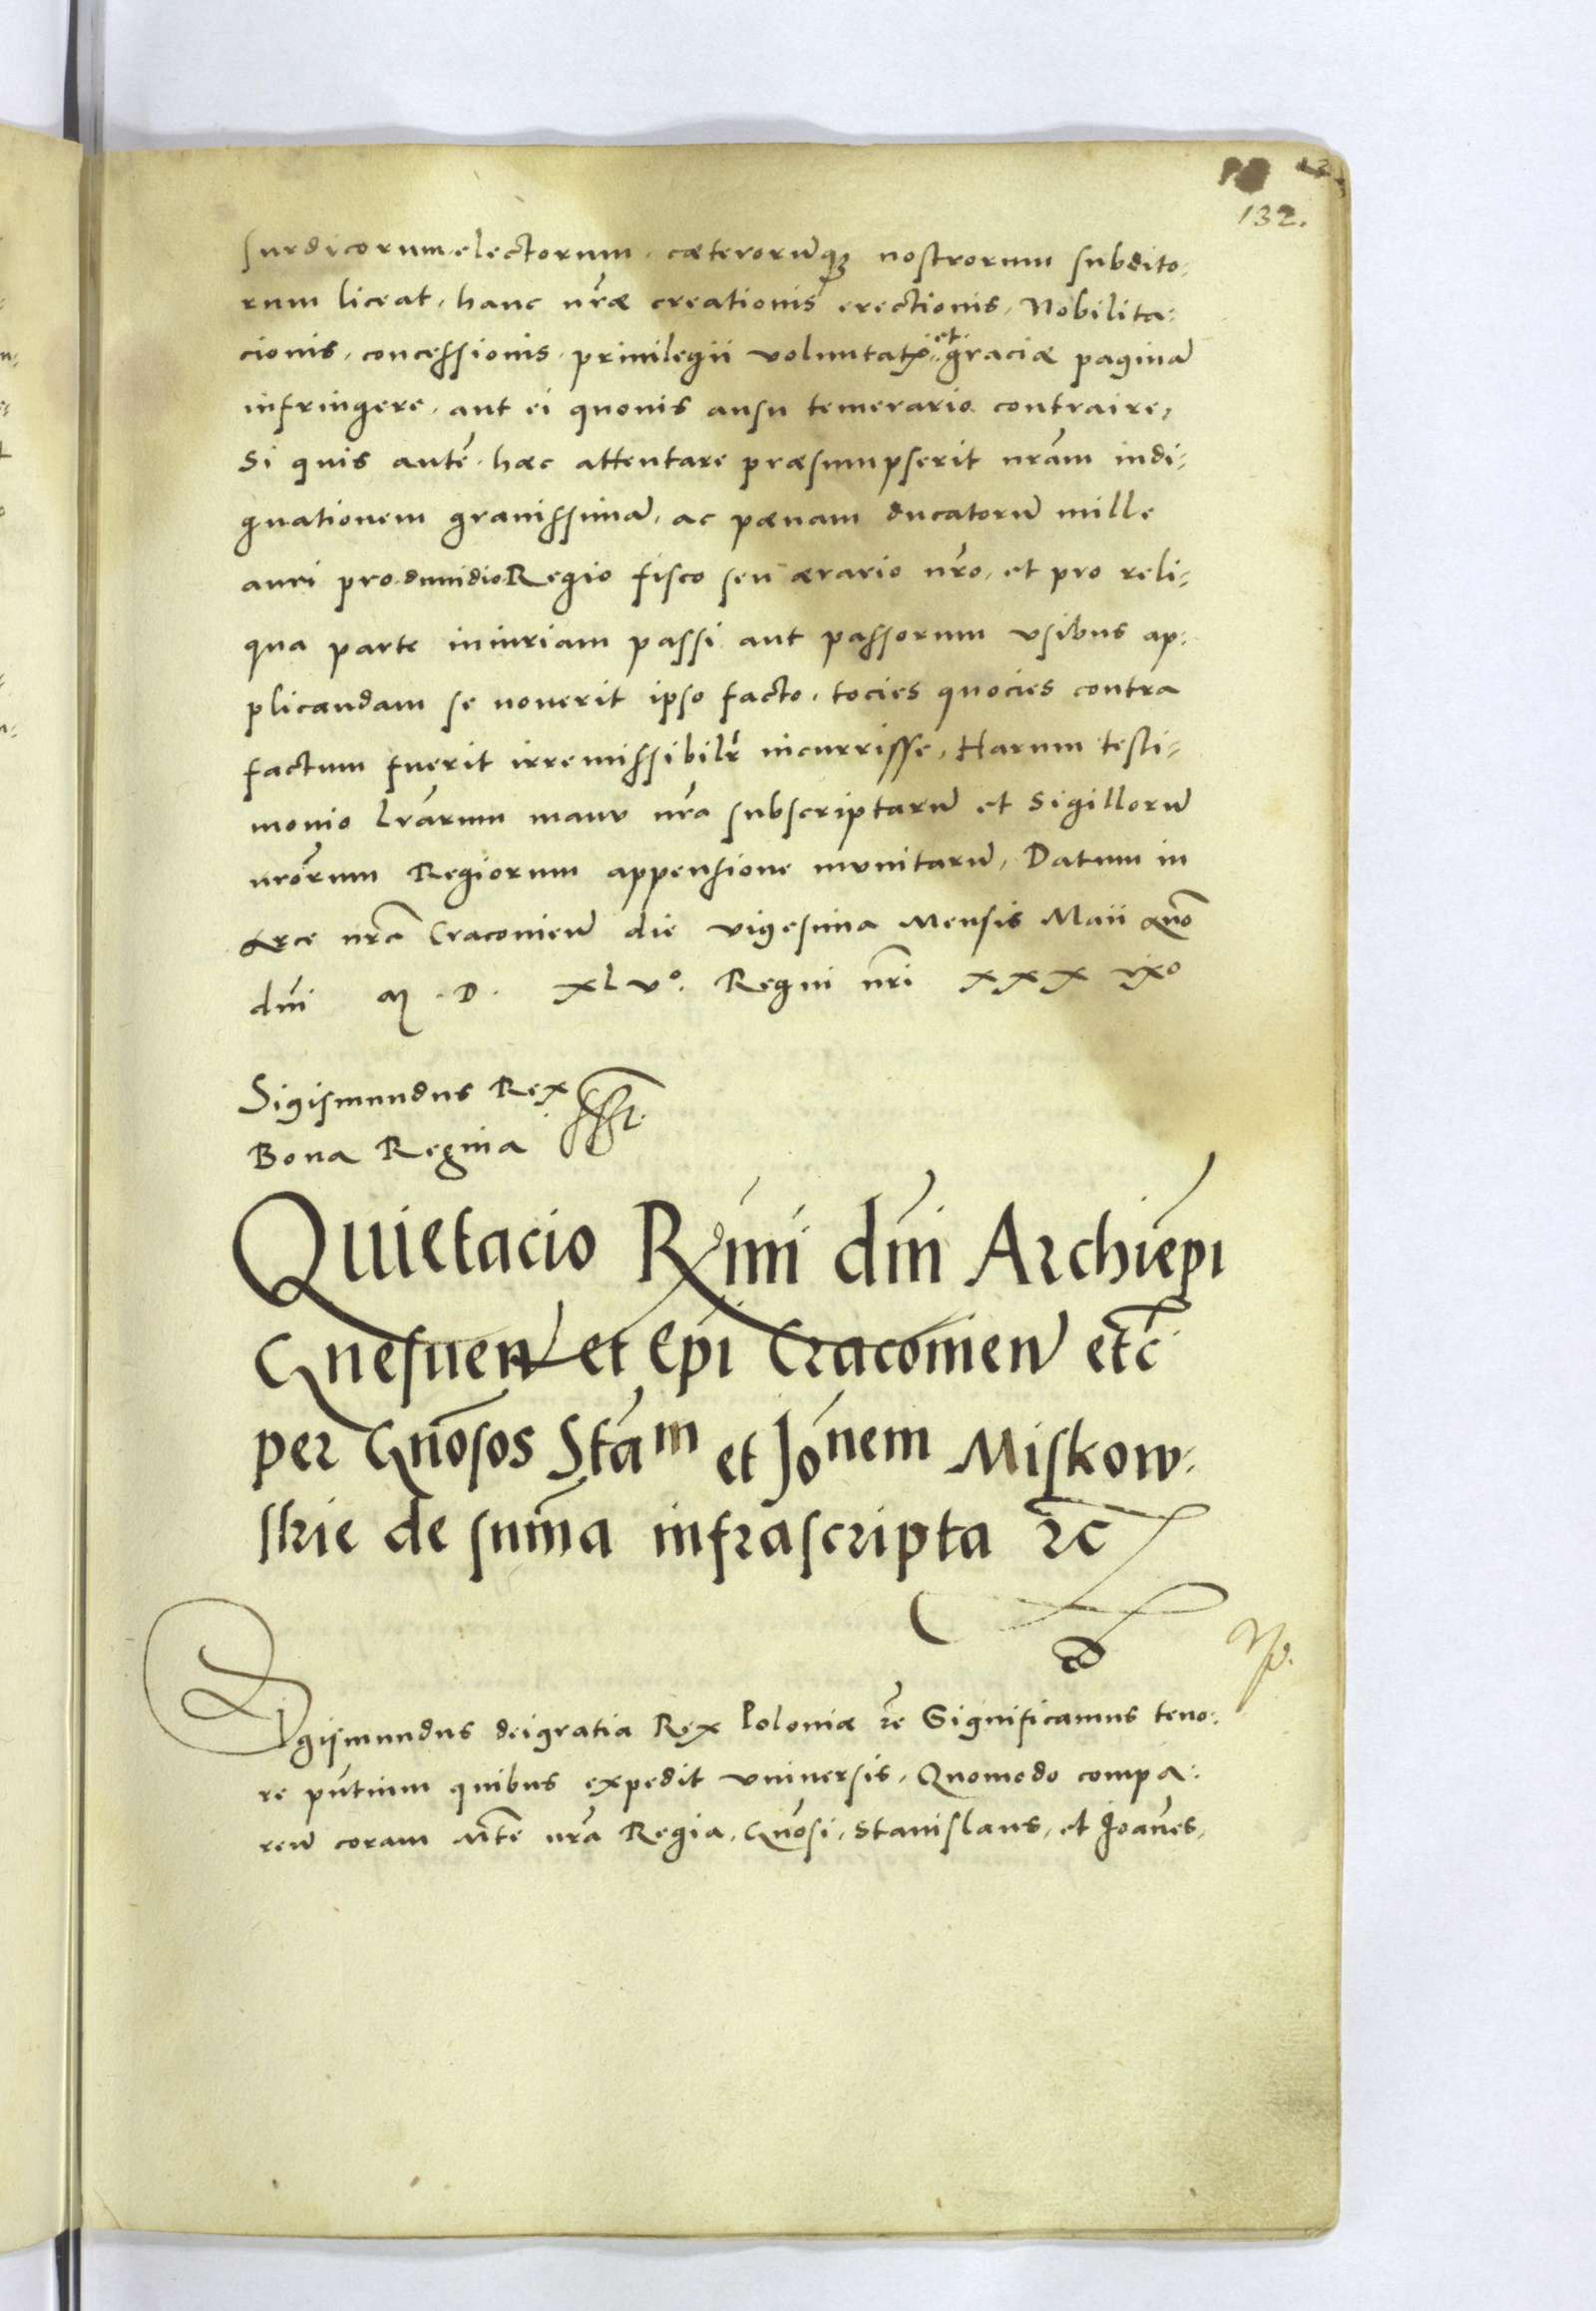 132.
surdicorum electorum, cæterorumq3 nostrorum subdito:
rum liceat, hanc nr̃æ creationis erectionis, Nobilita:
cionis, concessionis, priuilegii voluntatis et graciæ paginã
infringere, aut ei quouis ausu temerario contraire,
Si quis autẽ hæc attentare præsumpserit nrãm indi:
gnationem grauissimã, ac pænam ducatorũ mille
auri pro dimidio Regio fisco seu ærario nr̃o, et pro reli:
qua parte iniuriam passi aut passorum vsibus ap:
plicandam se nouerit ipso facto, tocies quocies contra
factum fuerit irremissibilr̃ incurrisse, Harum testi:
monio lr̃arum manu nr̃a subscriptarũ et Sigillorũ
nrõrum Regiorum appensione munitarũ, Datum in
Arce nr̃a Cracouieñ die vigesima Mensis Maii Anõ
dnĩ M. D. XLVº. Regni nr̃i XXXIXº
Sigismundus Rex
Bona Regina sst.
Quietacio Rmĩ dnĩ Archiepĩ
Gnesneñ et Epĩ Cracouieñ etc̃
per Gnõsos Stãm et Jõnem Miskow:
skie de sum̃a infrascripta rc
Sigismundus dei gratia Rex Poloniæ rc̃ Significamus teno:
re pñtium quibus expedit vniuersis, Quomodo compa:
reñ coram Mte nr̃a Regia, Gnõsi, Stanislaus, et Joañes,